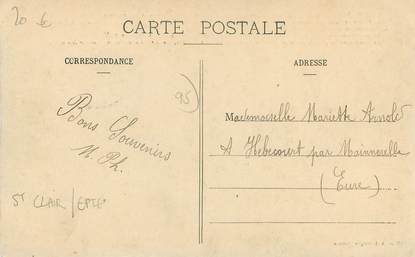 20 €
CARTE POSTALE
CORRESPONDANCE
ADRESSE
95
Bons Souvenirs
M. Ph.
Mademoiselle Mariette Arnold
A Hébécourt par Mainneville
(Eure)
ST CLAIR/EPTE